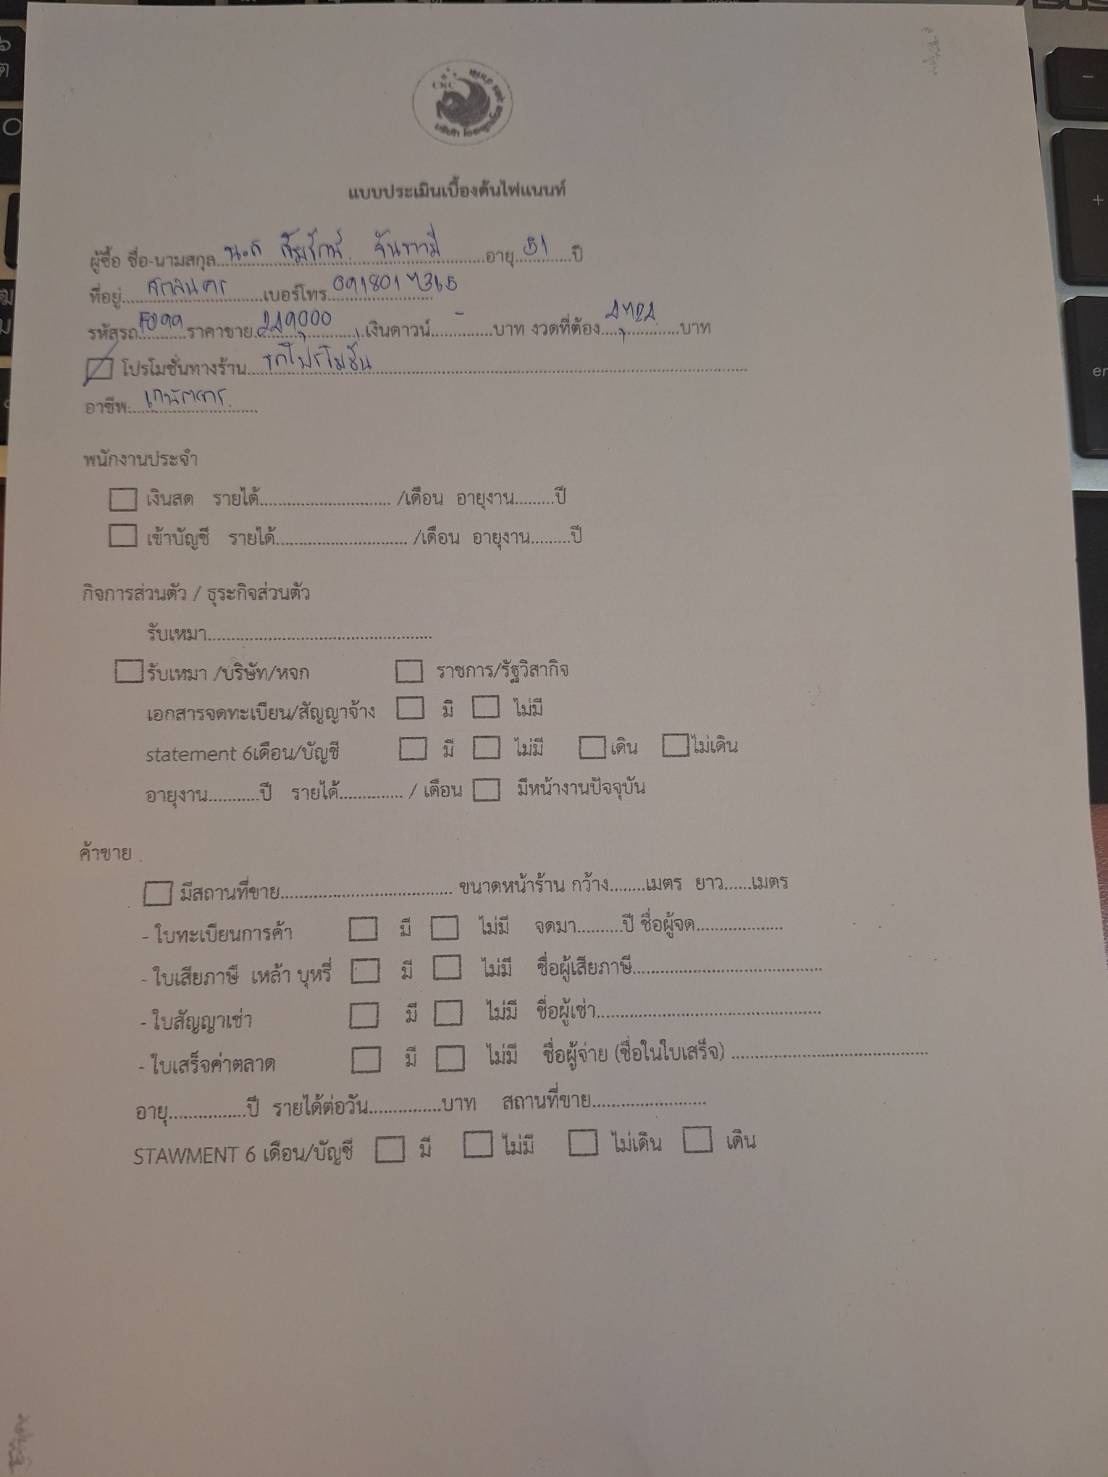 แบบประเมินเบื้องต้นไฟแนนท์
ผู้ซื้อ ชื่อ-นามสกุล น.ส จันทามี อายุ 51 ปี
ที่อยู่ เบอร์โทร
รหัสรถ F099 ราคาขาย 249000 เงินดาวน์ - บาท งวดที่ต้อง บาท
โปรโมชั่นทางร้าน รถโปรโมชั่น
อาชีพ เกษตกร
พนักงานประจำ
เงินสด รายได้ /เดือน อายุงาน ปี
เข้าบัญชี รายได้ /เดือน อายุงาน ปี
กิจการส่วนตัว / ธุระกิจส่วนตัว
รับเหมา
รับเหมา /บริษัท/หจก ราชการ/รัฐวิสากิจ
เอกสารจดทะเบียน/สัญญาจ้าง มี ไม่มี
statement 6เดือน/บัญชี มี ไม่มี เดิน ไม่เดิน
อายุงาน ปี รายได้ / เดือน มีหน้างานปัจจุบัน
ค้าขาย
มีสถานที่ขาย ขนาดหน้าร้าน กว้าง เมตร ยาว เมตร
- ใบทะเบียนการค้า มี ไม่มี จดมา ปี ชื่อผู้จด
- ใบเสียภาษี เหล้า บุหรี่ มี ไม่มี ชื่อผู้เสียภาษี
- ใบสัญญาเช่า มี ไม่มี ชื่อผู้เช่า
- ใบเสร็จค่าตลาด มี ไม่มี ชื่อผู้จ่าย (ชื่อในใบเสร็จ)
อายุ ปี รายได้ต่อวัน บาท สถานที่ขาย
STAWMENT 6 เดือน/บัญชี มี ไม่มี ไม่เดิน เดิน